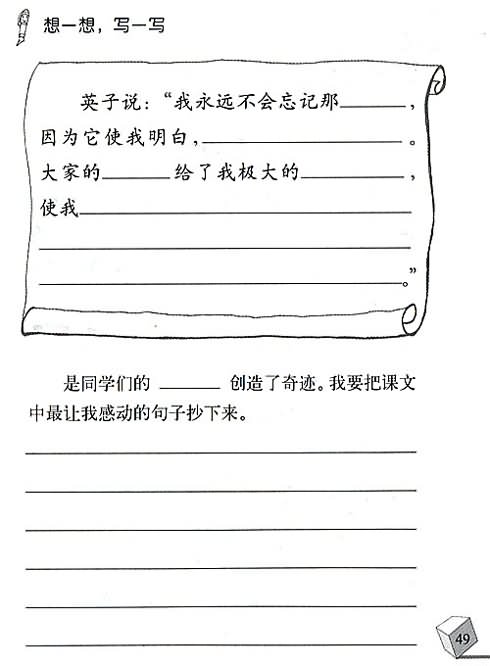 想一想，写一写
英子说：“我永远不会忘记那______，
因为它使我明白，__________________。
大家的______给了我极大的__________，
使我______________________________
__________________________________
_________________________________。”
是同学们的 ______ 创造了奇迹。我要把课文
中最让我感动的句子抄下来。
49